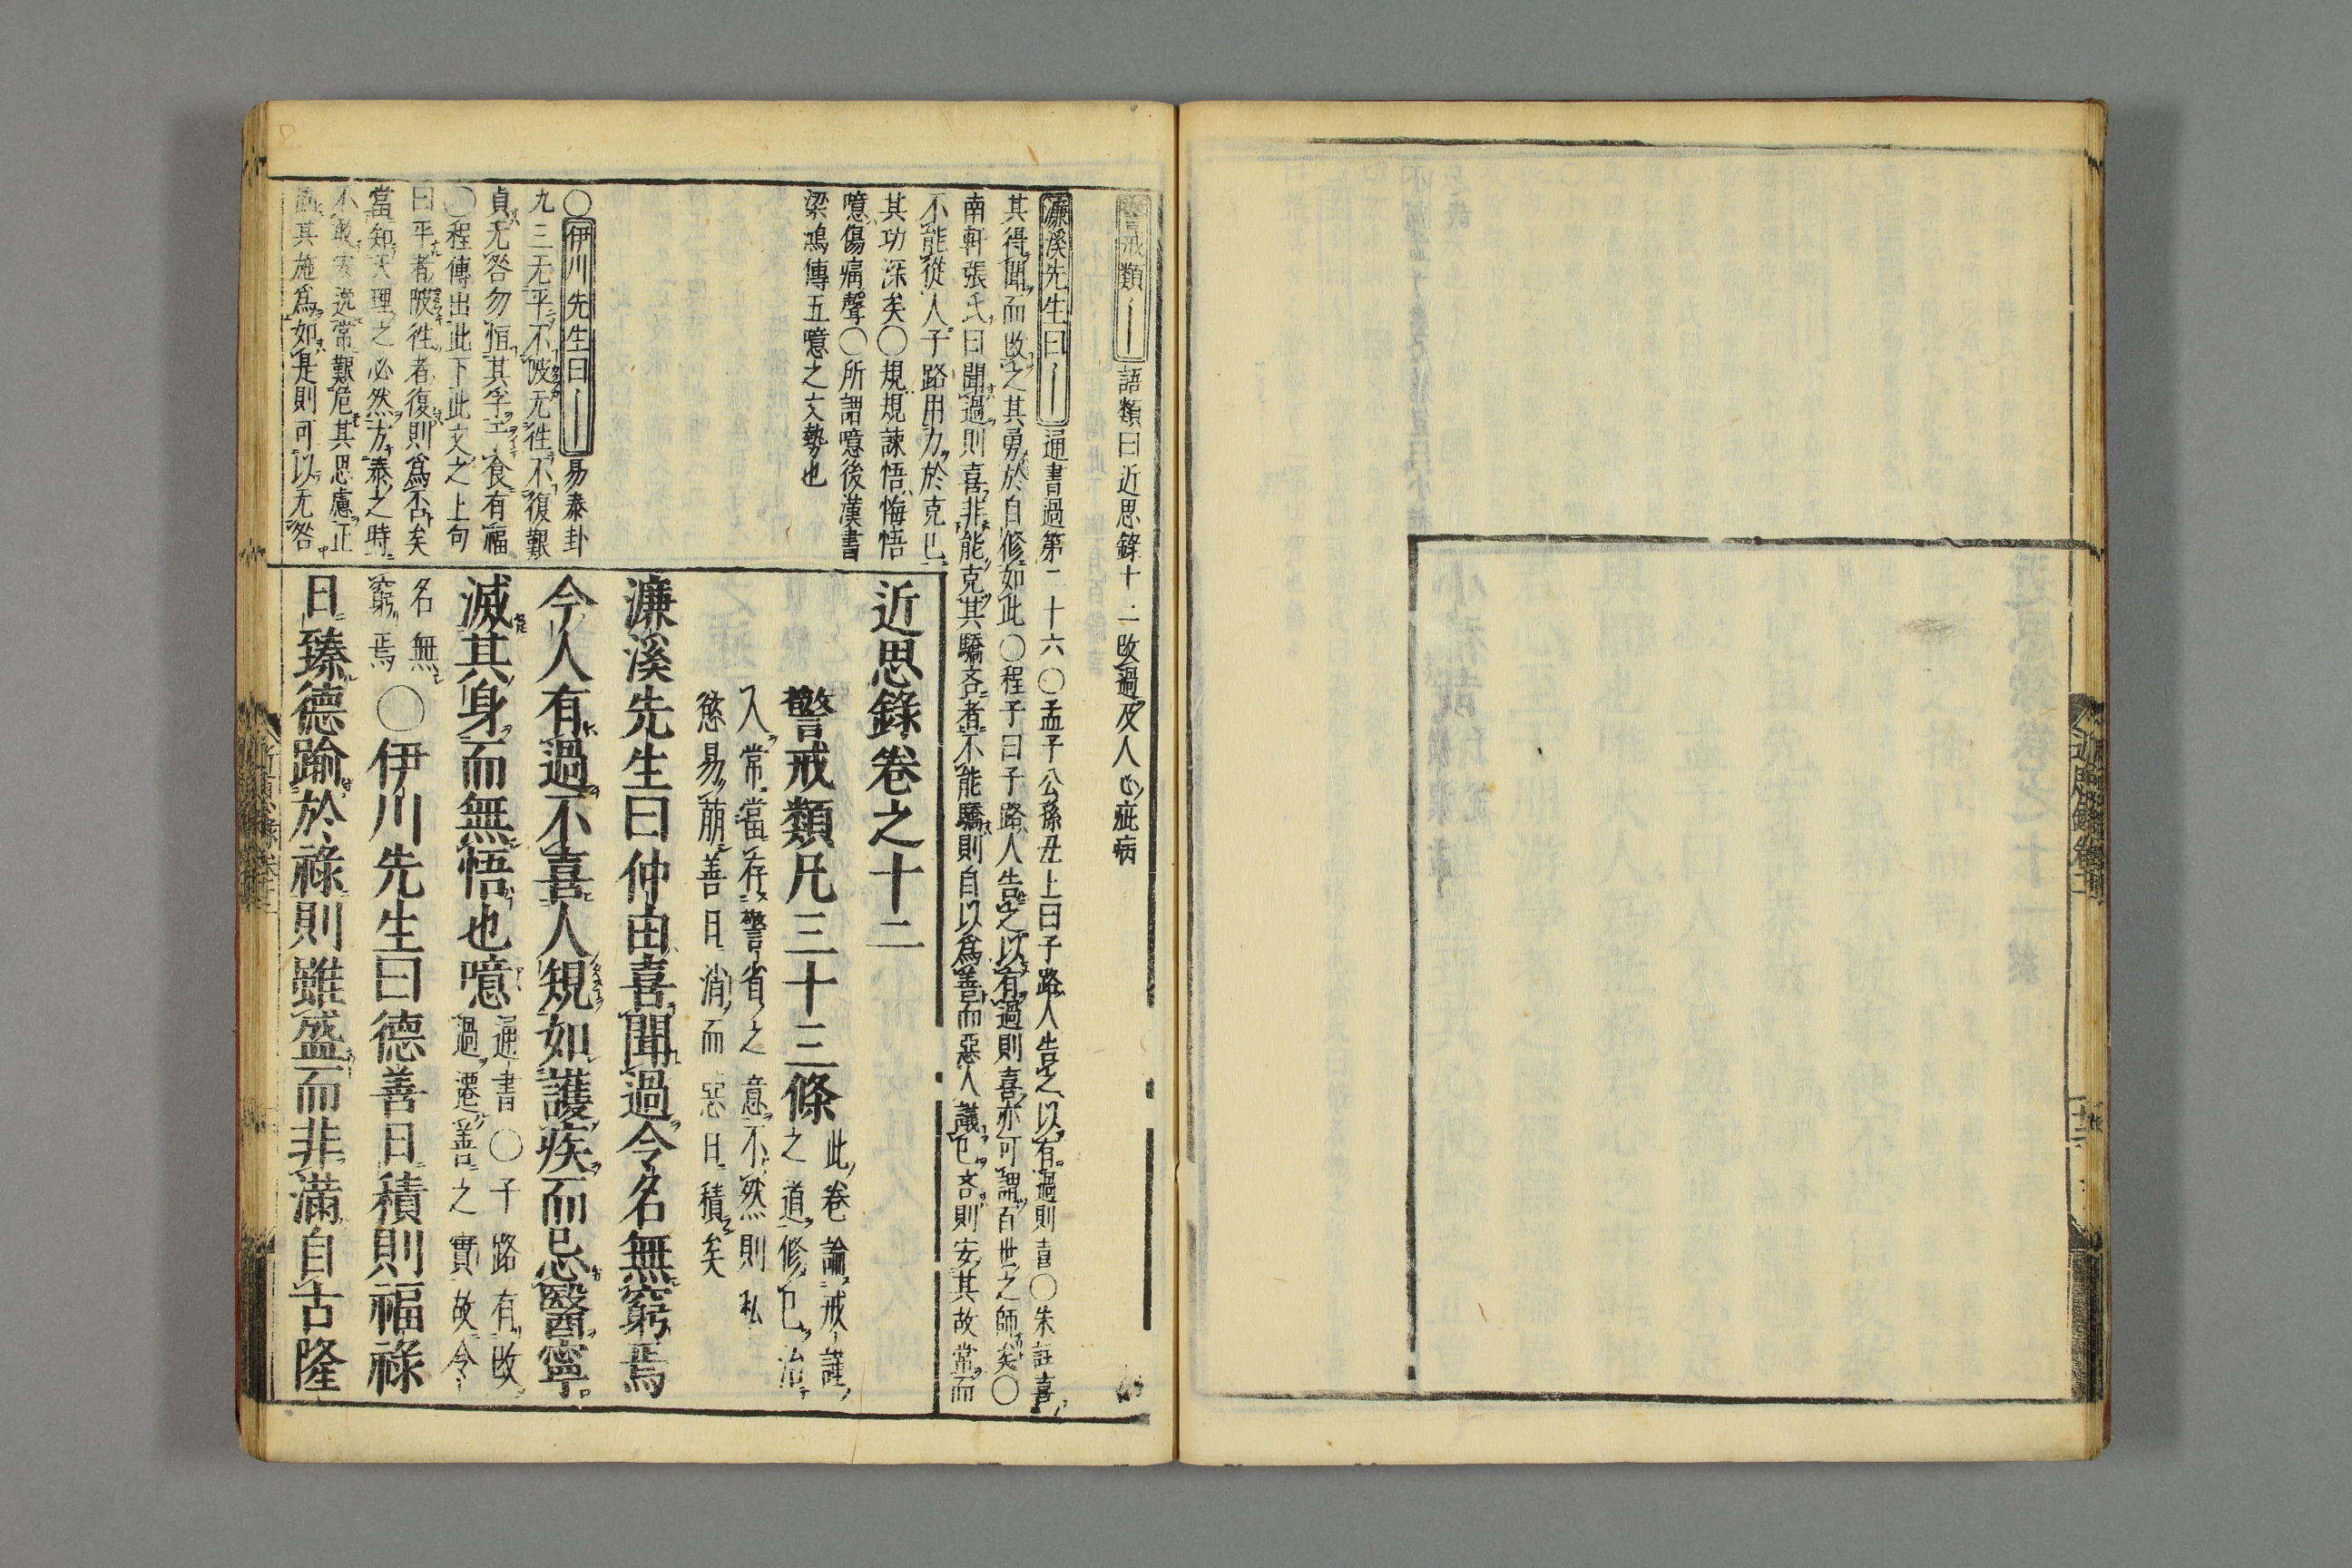 近思錄卷
十二
警戒類 語類曰近思錄十二改過及人心疵病
濂溪先生曰 通書過第二十六○孟子公孫丑上曰子路人告之以有過則喜○朱註喜
其得聞而改之其勇於自修如此○程子曰子路人告之以有過則喜亦可謂百世之師矣○
南軒張氏曰聞過則喜非能克其驕吝者不能驕則自以為善而惡人議己吝則安其故常而
不能從人子路用力於克己
其功深矣○規規諫悟悔悟
噫傷痛聲○所謂噫後漢書
梁鴻傳五噫之文勢也
○伊川先生曰 易泰卦
九三无平不陂无徃不復艱
貞无咎勿恒其孚于食有福
○程傳出此下此文之上句
曰平者陂徃者復則爲否矣
當知天理之必然方泰之時
不敢安逸常艱危其思慮正
固其施爲如是則可以无咎
近思錄卷之十二
警戒類凡三十三條
此卷論戒謹
之道修己治
人常當存警省之意不然則私
慾易萠善日消而惡日積矣
濂溪先生曰仲由喜聞過令名無窮焉
今人有過不喜人規如護疾而忌醫寧
滅其身而無悟也噫
通書○子路有改
過遷善之實故令
名無
窮焉
○伊川先生曰德善日積則福祿
日臻德踰於祿則雖盛而非滿自古隆